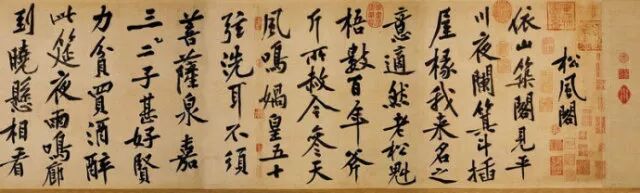 松風閣
依山築閣見平
川夜闌箕斗插
屋椽我來名之
意適然老松魁
梧數百年斧
斤所赦今參天
風鳴媧皇五十
弦洗耳不須
菩薩泉嘉
三二子甚好賢
力貧買酒醉
此筵夜雨鳴廊
到曉懸相看